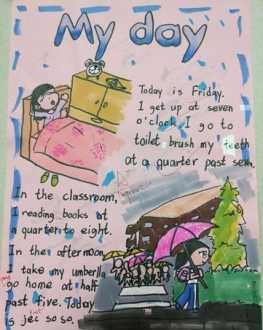 My day
Today is Friday.
I get up at seven
o'clock. I go to
toilet brush my teeth
at a quarter past seven.
In the classroom,
I reading books at
a quarter to eight.
In the afternoon
I take my umberlla
go home at half
past five. Today
is so so.